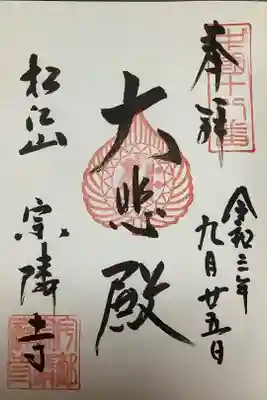 奉拝
令和三年
九月廿五日
大悲殿
松江山
宗隣寺